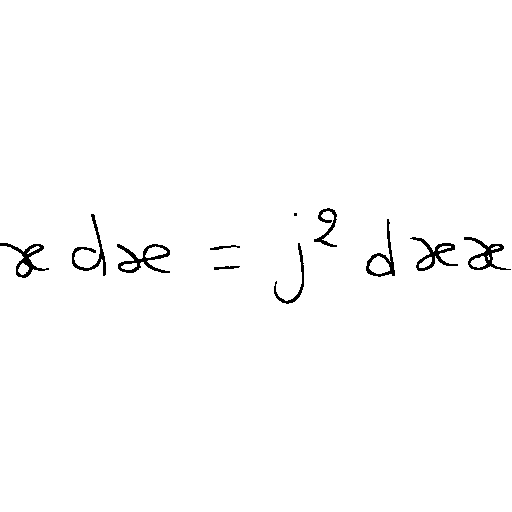 x dx = j² dx x